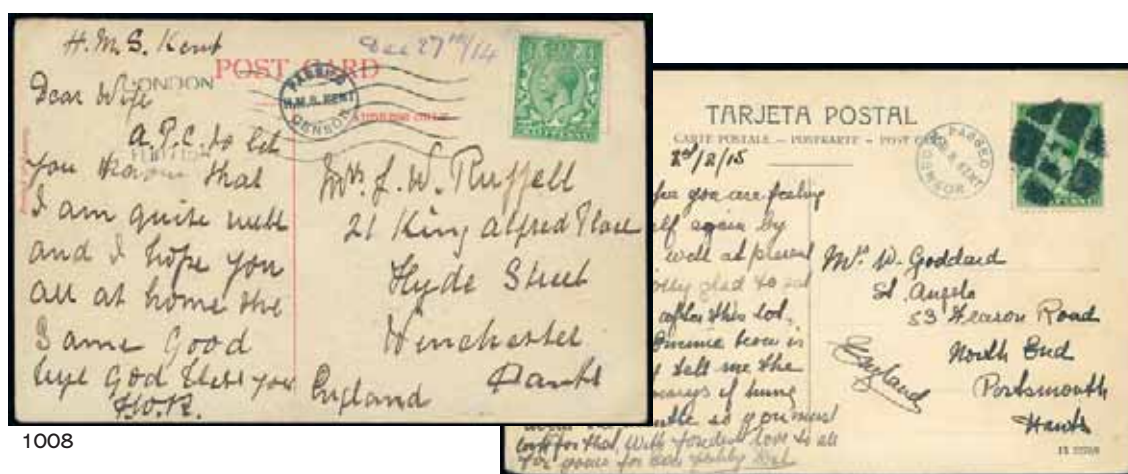 H.M.S. Kent
Dec 27th/14
POST CARD
LONDON
PASSED
H.M.S. KENT
CENSOR
Dear Wife
A.P.C. to let
you know that
I am quite well
and I hope you
all at home the
Same Good
bye God bless you
England
Mrs J. W. Ruffell
21 King Alfred Place
Hyde Street
Winchester
Hants
1008
TARJETA POSTAL
CARTE POSTALE — POSTKARTE — POST
PASSED
H.M.S. KENT
CENSOR
/2/15
you are feeling
again by
well at present
glad to
after this lot,
is
tell me the
if
so you must
look for that, With fondest love to all
Mrs W. Goddard
St. Angelo
53 Fearon Road
North End
Portsmouth
Hants
England